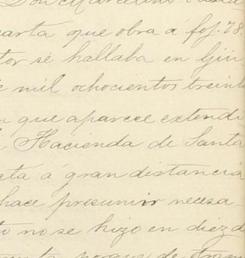 Don
carta que obra á foj. 78
tor se hallaba en
e mil ochocientos treint
que aparece extendi
Hacienda de Santa
eta á gran distancia
hace presumir necesa
to no se hizo en diez d
porque de